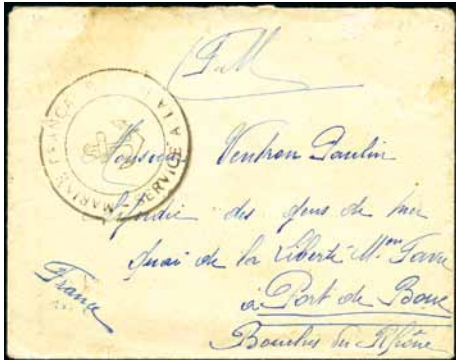 F.M
MARINE FRANCAISE
SERVICE A LA
Monsieur Ventron Paulin
Syndic des gens de mer
Quai de la Liberté M^on
à Port de Bouc
Bouches du Rhône
France